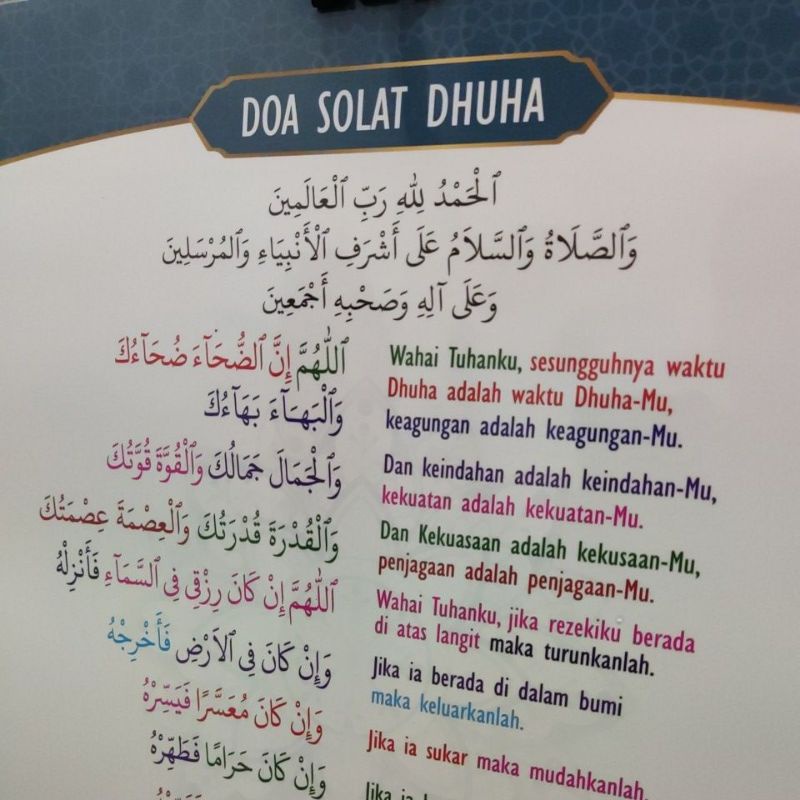 DOA SOLAT DHUHA
ٱلْحَمْدُ لِلّٰهِ رَبِّ ٱلْعَالَمِينَ
وَٱلصَّلَاةُ وَٱلسَّلَامُ عَلَى أَشْرَفِ ٱلْأَنْبِيَاءِ وَٱلْمُرْسَلِينَ
وَعَلَى آلِهِ وَصَحْبِهِ أَجْمَعِينَ
ٱللّٰهُمَّ إِنَّ ٱلضُّحَآءَ ضُحَآءُكَ
وَٱلْبَهَآءَ بَهَآءُكَ
وَٱلْجَمَالَ جَمَالُكَ وَٱلْقُوَّةَ قُوَّتُكَ
وَٱلْقُدْرَةَ قُدْرَتُكَ وَٱلْعِصْمَةَ عِصْمَتُكَ
ٱللّٰهُمَّ إِنْ كَانَ رِزْقِي فِي ٱلسَّمَآءِ فَأَنْزِلْهُ
وَإِنْ كَانَ فِي ٱلَارْضِ فَأَخْرِجْهُ
وَإِنْ كَانَ مُعَسَّرًا فَيَسِّرْهُ
وَإِنْ كَانَ حَرَامًا فَطَهِّرْهُ
Wahai Tuhanku, sesungguhnya waktu
Dhuha adalah waktu Dhuha-Mu,
keagungan adalah keagungan-Mu.
Dan keindahan adalah keindahan-Mu,
kekuatan adalah kekuatan-Mu.
Dan Kekuasaan adalah kekusaan-Mu,
penjagaan adalah penjagaan-Mu.
Wahai Tuhanku, jika rezekiku berada
di atas langit maka turunkanlah.
Jika ia berada di dalam bumi
maka keluarkanlah.
Jika ia sukar maka mudahkanlah.
Jika ia